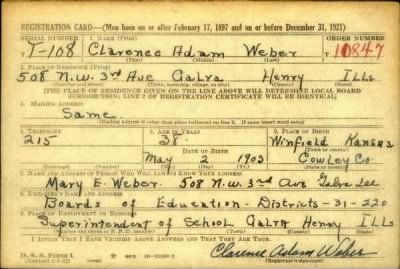 REGISTRATION CARD—(Men born on or after February 17, 1897 and on or before December 31, 1921)
SERIAL NUMBER 1. NAME (Print) ORDER NUMBER
T-108 Clarence Adam Weber 10847
(First) (Middle) (Last)
2. PLACE OF RESIDENCE (Print)
508 N.W. 3rd Ave Galva Henry Ills
(Number and street) (Town, township, village, or city) (County) (State)
[THE PLACE OF RESIDENCE GIVEN ON THE LINE ABOVE WILL DETERMINE LOCAL BOARD
JURISDICTION; LINE 2 OF REGISTRATION CERTIFICATE WILL BE IDENTICAL]
3. MAILING ADDRESS
Same.
[Mailing address if other than place indicated on line 2. If same insert word same]
4. TELEPHONE 5. AGE IN YEARS 6. PLACE OF BIRTH
215 38 Winfield Kansas
DATE OF BIRTH
May 2 1903 Cowley Co.
(Mo.) (Day) (Yr.)
7. NAME AND ADDRESS OF PERSON WHO WILL ALWAYS KNOW YOUR ADDRESS
Mary E. Weber. 508 N.W. 3rd Ave Galva
8. EMPLOYER'S NAME AND ADDRESS
Boards of Education - Districts - 31-220
9. PLACE OF EMPLOYMENT OR BUSINESS
Superintendent of School Galva Henry Ills
I AFFIRM THAT I HAVE VERIFIED ABOVE ANSWERS AND THAT THEY ARE TRUE.
D. S. S. FORM 1
Clarence Adam Weber